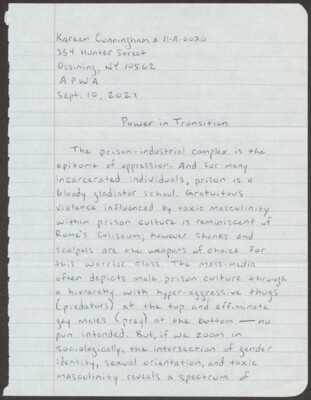 Kareer Cunningham # 11-A-0030
354 Hunter Street
Ossining, NY 10562
APWA
Sept. 10, 2021
Power in Transition
The prison-industrial complex is the
epitome of oppression. And for many
incarcerated individuals, prison is a
bloody gladiator school. Gratuitous
violence influenced by toxic masculinity
within prison culture is reminiscent of
Rome's Coliseum; however shanks and
scalpels are the weapons of choice for
this warrior class. The mass-media
often depicts male prison culture through
a hierarchy with hyper-aggressive thugs
(predators) at the top and effiminate
gay males (prey) at the bottom — no
pun intended. But, if we zoom in
sociologically, the intersection of gender
identity, sexual orientation, and toxic
masculinity reveals a spectrum of